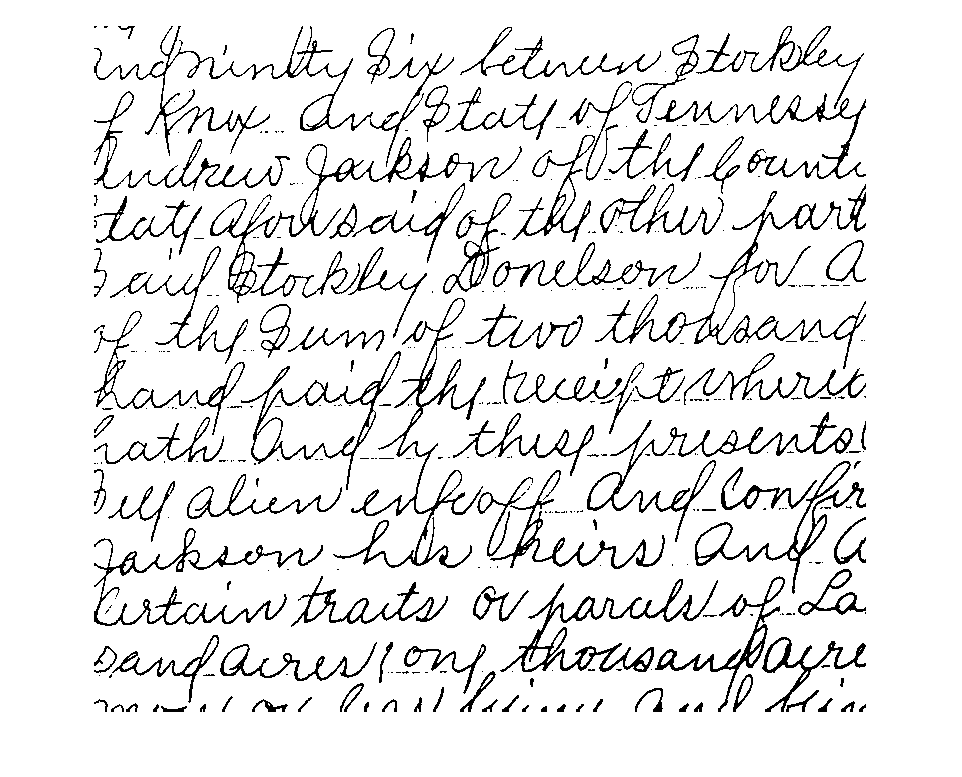 and ninty Six between Stockley
of Knox and State of Tennessey
Andrew Jackson of the Count
State aforesaid of the other part
Said Stockley Donelson for a
of the Sum of two thousand
hand paid the receipt where
hath and by these presents
Sell alien enfeoff and Confir
Jackson his heirs and a
Certain tracts or parcels of La
sand acres one thousand acre
more or less lying and bein